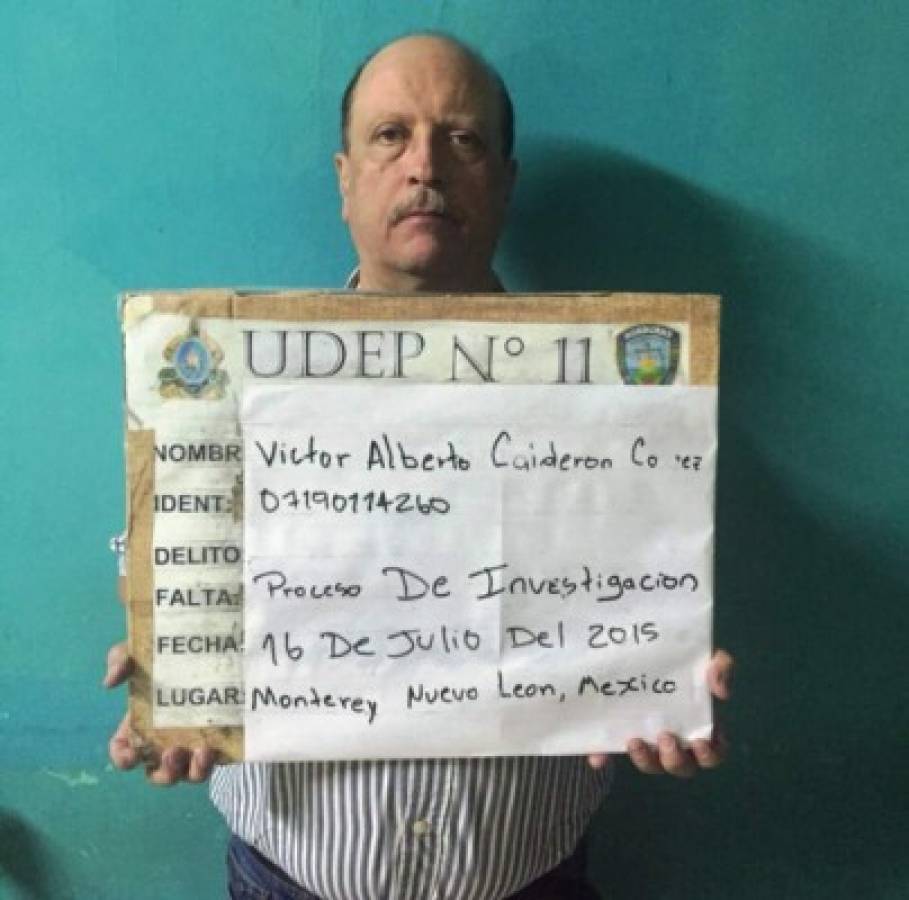 UDEP Nº 11
NOMBR Victor Alberto Calderon Co ez
IDENT: 07190114260
DELITO
FALTA: Proceso De Investigacion
FECHA: 16 De Julio Del 2015
LUGAR: Monterey Nuevo Leon, Mexico